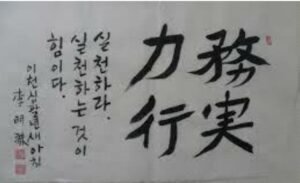 務実
力行
실천하라.
실천하는 것이
힘이다.
이천십팔년새아침
李明